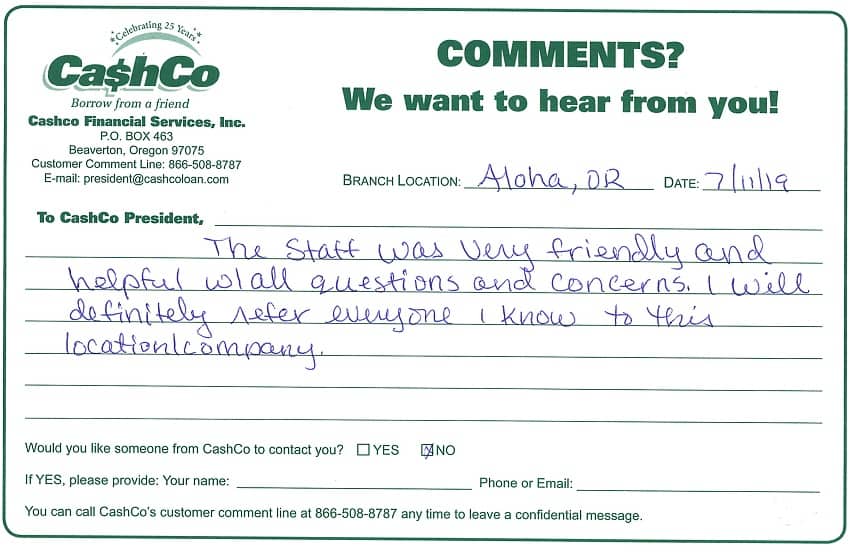 Celebrating 25 Years
Ca$hCo
Borrow from a friend
Cashco Financial Services, Inc.
P.O. BOX 463
Beaverton, Oregon 97075
Customer Comment Line: 866-508-8787
E-mail: president@cashcoloan.com
COMMENTS?
We want to hear from you!
BRANCH LOCATION: Aloha, OR DATE: 7/11/19
To CashCo President,
The staff was very friendly and
helpful w/all questions and concerns. I will
definitely refer everyone I know to this
location/company.
Would you like someone from CashCo to contact you? YES NO
If YES, please provide: Your name: Phone or Email:
You can call CashCo's customer comment line at 866-508-8787 any time to leave a confidential message.